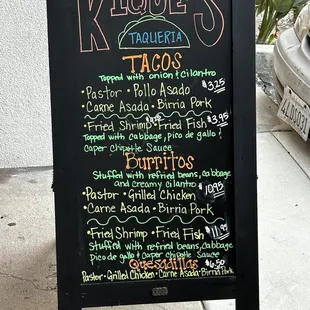 KIQUE'S
TAQUERIA
TACOS
Topped with onion & cilantro
• Pastor • Pollo Asado $3.25
• Carne Asada • Birria Pork
• Fried Shrimp • Fried Fish $3.95
Topped with cabbage, pico de gallo &
caper Chipotle Sauce
Burritos
Stuffed with refried beans, cabbage
and creamy cilantro
• Pastor • Grilled Chicken 10.95
• Carne Asada • Birria Pork
• Fried Shrimp • Fried Fish $11.99
Stuffed with refried beans, cabbage
pico de gallo & caper chipotle Sauce
Quesadillas $6.50
Pastor • Grilled Chicken • Carne Asada • Birria Pork